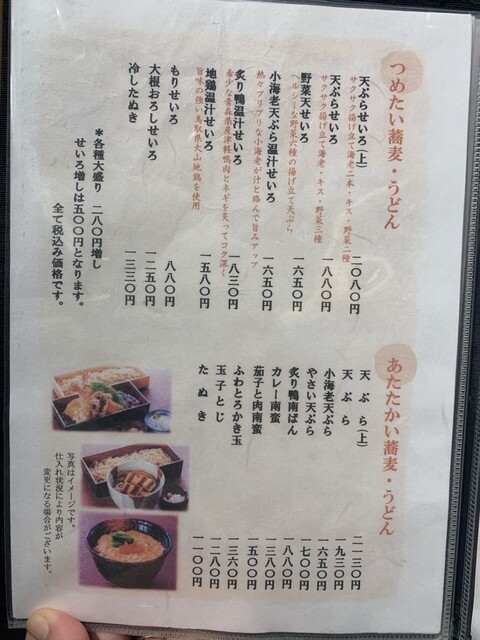 つめたい蕎麦・うどん
天ぷらせいろ(上) 二〇八〇円
サクサク揚げたて海老二本・キス・野菜二種
天ぷらせいろ 一八八〇円
サクサク揚げたて海老・キス・野菜三種
野菜天せいろ 一六五〇円
ヘルシーな野菜六種の揚げ立て天ぷら
小海老天ぷら温汁せいろ 一六五〇円
熱々プリプリな小海老が汁と絡んで旨みアップ
炙り鴨温汁せいろ 一八三〇円
希少な青森県産津軽鴨肉とネギを炙ってコク深く
地鶏温汁せいろ 一五八〇円
旨味の強い鳥取県大山地鶏を使用
もりせいろ 八八〇円
大根おろしせいろ 一二五〇円
冷したぬき 一二三〇円
*各種大盛り 二八〇円増し
せいろ増しは五〇〇円となります。
全て税込み価格です。
あたたかい蕎麦・うどん
天ぷら(上) 二一三〇円
天ぷら 一九三〇円
小海老天ぷら 一六五〇円
やさい天ぷら 一七〇〇円
炙り鴨南ばん 一八八〇円
カレー南蛮 一三八〇円
茄子と肉南蛮 一五〇〇円
ふわとろかき玉 一三六〇円
玉子とじ 一二八〇円
たぬき 一一〇〇円
写真はイメージです。
仕入れ状況により内容が
変更になる場合がございます。